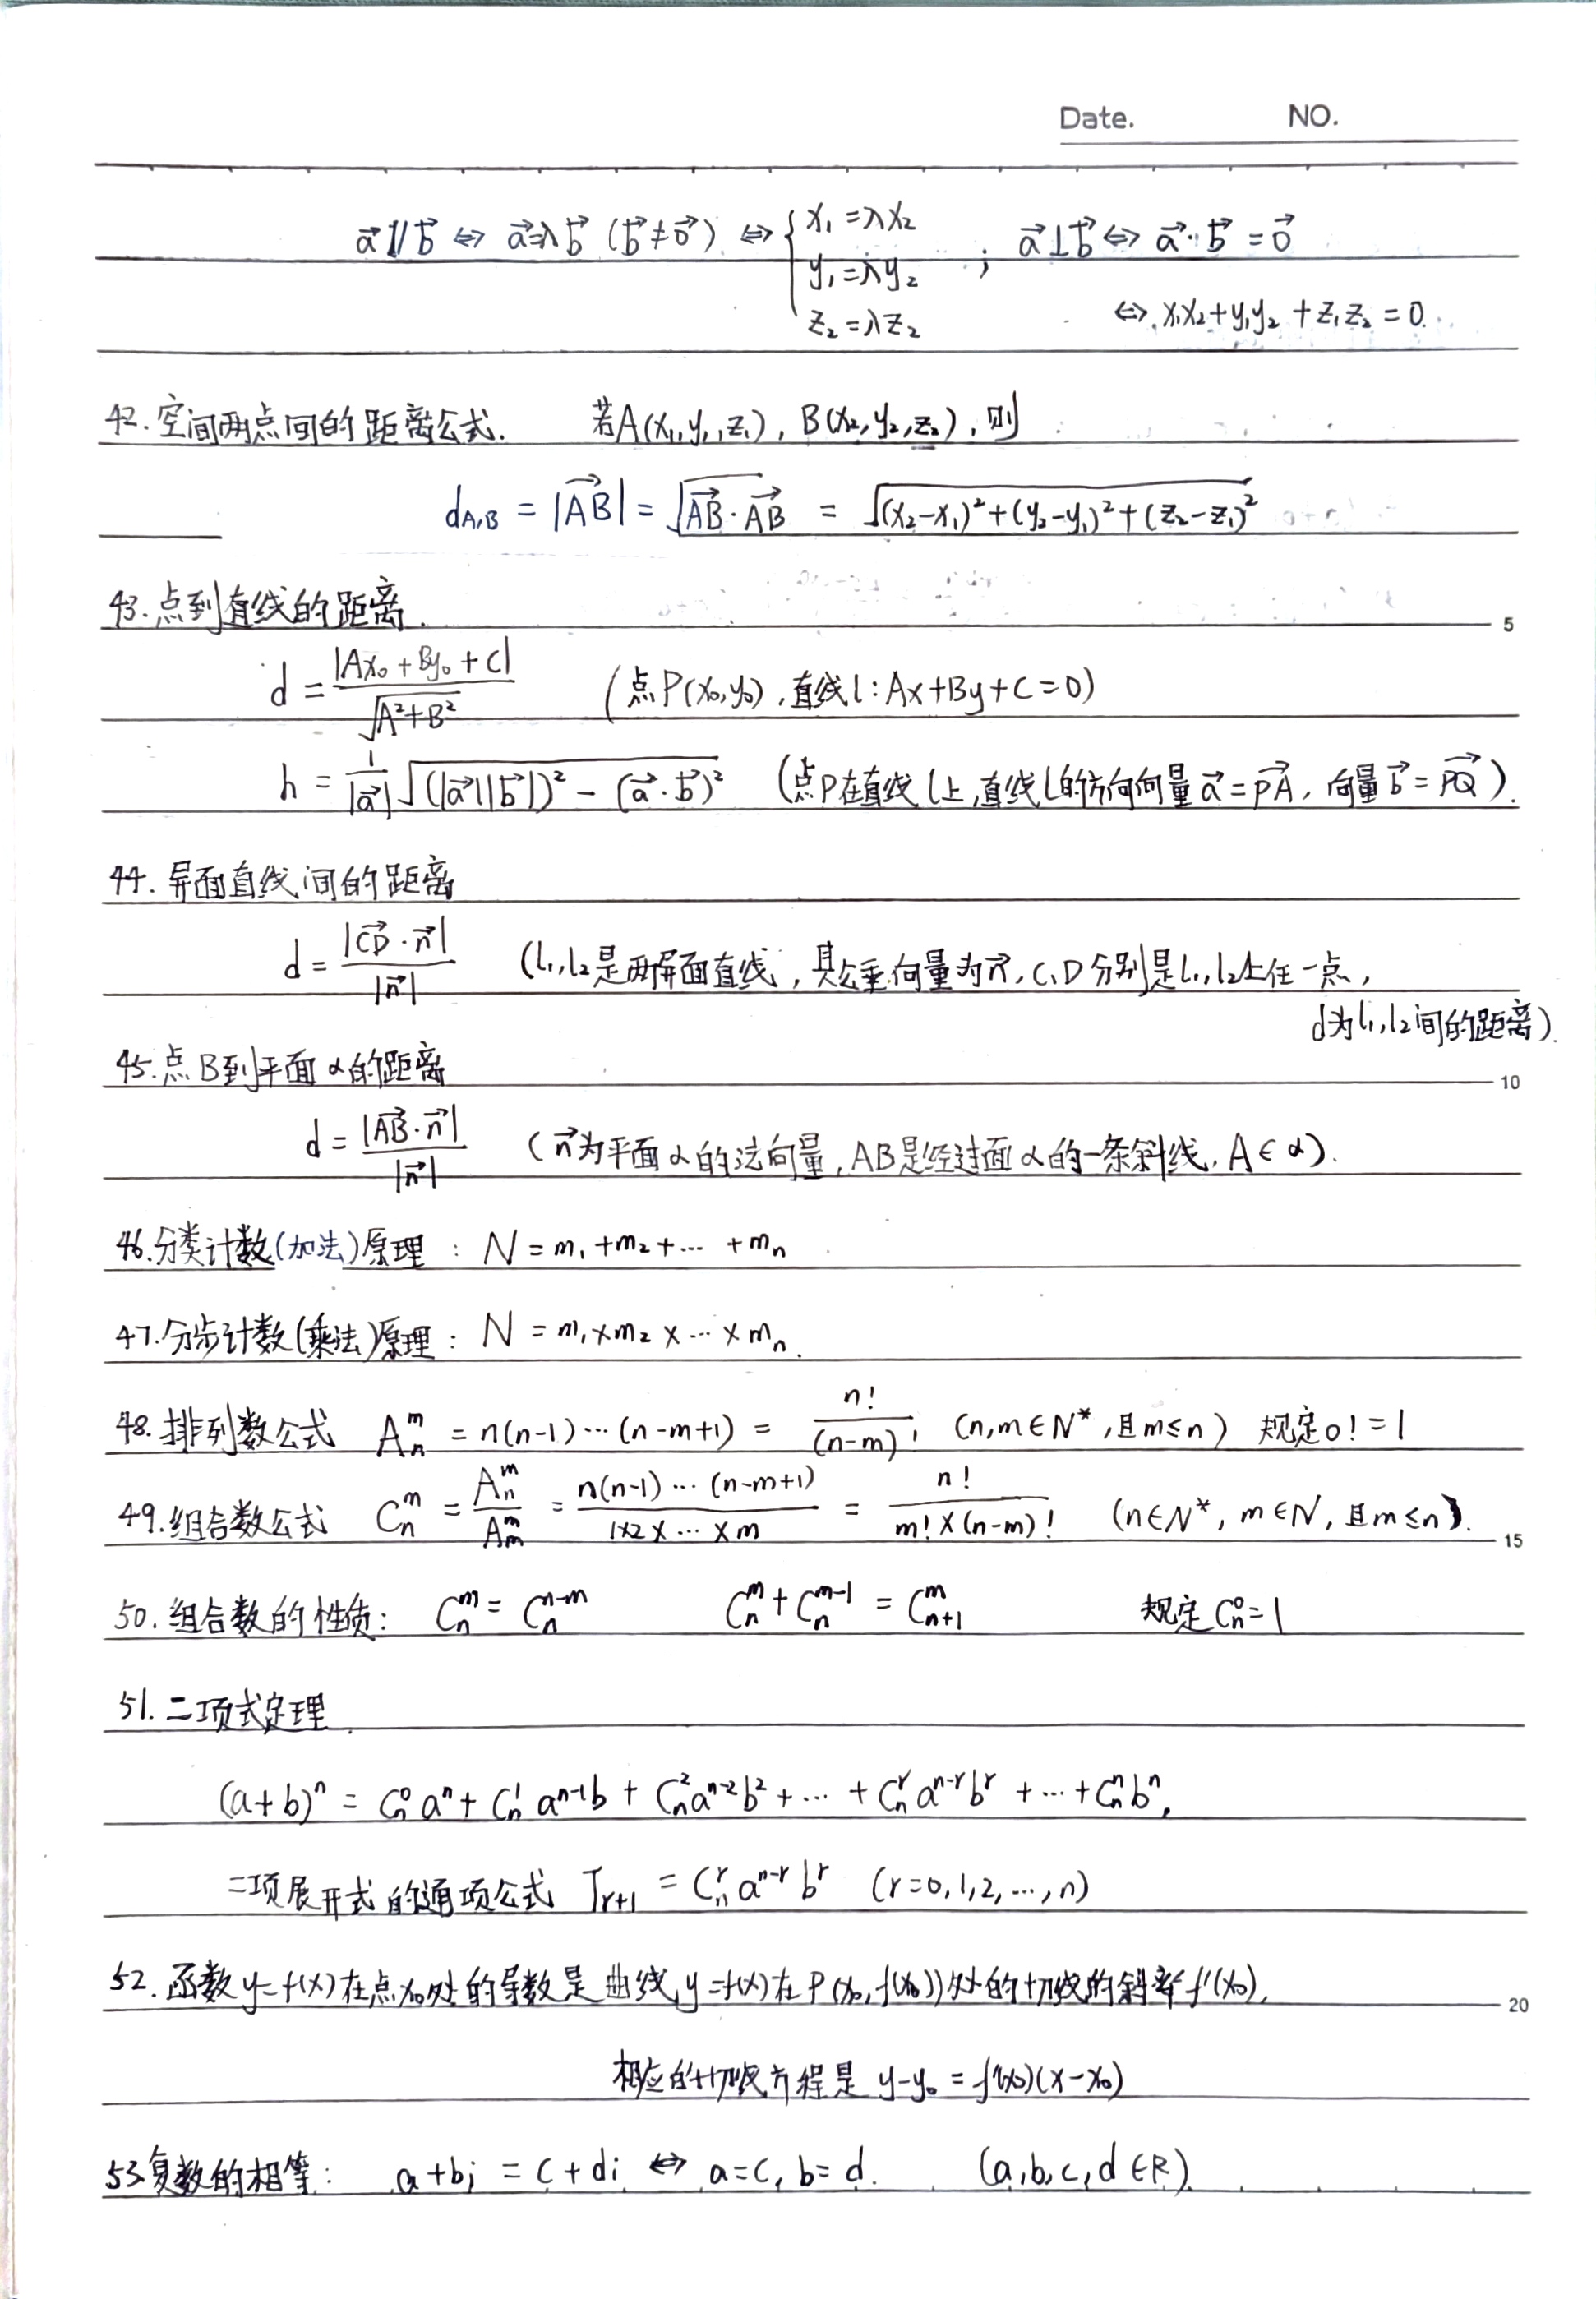 Date. NO.
a⃗ // b⃗ ⇔ a⃗=λb⃗ (b⃗≠0⃗) ⇔ { x₁=λx₂ y₁=λy₂ z₂=λz₂ ; a⃗⊥b⃗ ⇔ a⃗·b⃗=0⃗
⇔ x₁x₂+y₁y₂+z₁z₂=0.
42.空间两点间的距离公式. 若A(x₁,y₁,z₁), B(x₂,y₂,z₂), 则
d_{A,B} = |AB⃗| = √(AB⃗·AB⃗) = √((x₂-x₁)²+(y₂-y₁)²+(z₂-z₁)²)
43.点到直线的距离.
5
d = |Ax₀+By₀+C| / √(A²+B²) (点P(x₀,y₀), 直线l: Ax+By+C=0)
h = 1/|a⃗| √((|a⃗||b⃗|)² - (a⃗·b⃗)²) (点P在直线l上,直线l的方向向量a⃗=PA⃗, 向量b⃗=PQ⃗).
44.异面直线间的距离
d = |CD⃗·n⃗| / |n⃗| (l₁,l₂是两异面直线, 其公垂向量为n⃗, C,D分别是l₁,l₂上任一点,
d为l₁,l₂间的距离).
45.点B到平面α的距离
10
d = |AB⃗·n⃗| / |n⃗| (n⃗为平面α的法向量, AB是经过面α的一条斜线, A∈α).
46.分类计数(加法)原理: N=m₁+m₂+…+mₙ
47.分步计数(乘法)原理: N=m₁×m₂×…×mₙ.
48.排列数公式 Aₙᵐ = n(n-1)…(n-m+1) = n!/(n-m)! (n,m∈N*,且m≤n) 规定0!=1
49.组合数公式 Cₙᵐ = Aₙᵐ/Aₘᵐ = n(n-1)…(n-m+1) / 1×2×…×m = n! / m!×(n-m)! (n∈N*, m∈N, 且m≤n).
15
50.组合数的性质: Cₙᵐ = Cₙⁿ⁻ᵐ Cₙᵐ+Cₙᵐ⁻¹ = Cₙ₊₁ᵐ 规定Cₙ⁰=1
51.二项式定理.
(a+b)ⁿ = Cₙ⁰aⁿ + Cₙ¹aⁿ⁻¹b + Cₙ²aⁿ⁻²b² + … + Cₙʳaⁿ⁻ʳbʳ + … + Cₙⁿbⁿ,
二项展开式的通项公式 Tᵣ₊₁ = Cₙʳaⁿ⁻ʳbʳ (r=0,1,2,…,n)
52.函数y=f(x)在点x₀处的导数是曲线y=f(x)在P(x₀,f(x₀))处的切线的斜率f'(x₀),
20
相应的切线方程是 y-y₀=f'(x₀)(x-x₀)
53.复数的相等: a+bi = c+di ⇔ a=c, b=d. (a,b,c,d∈R).